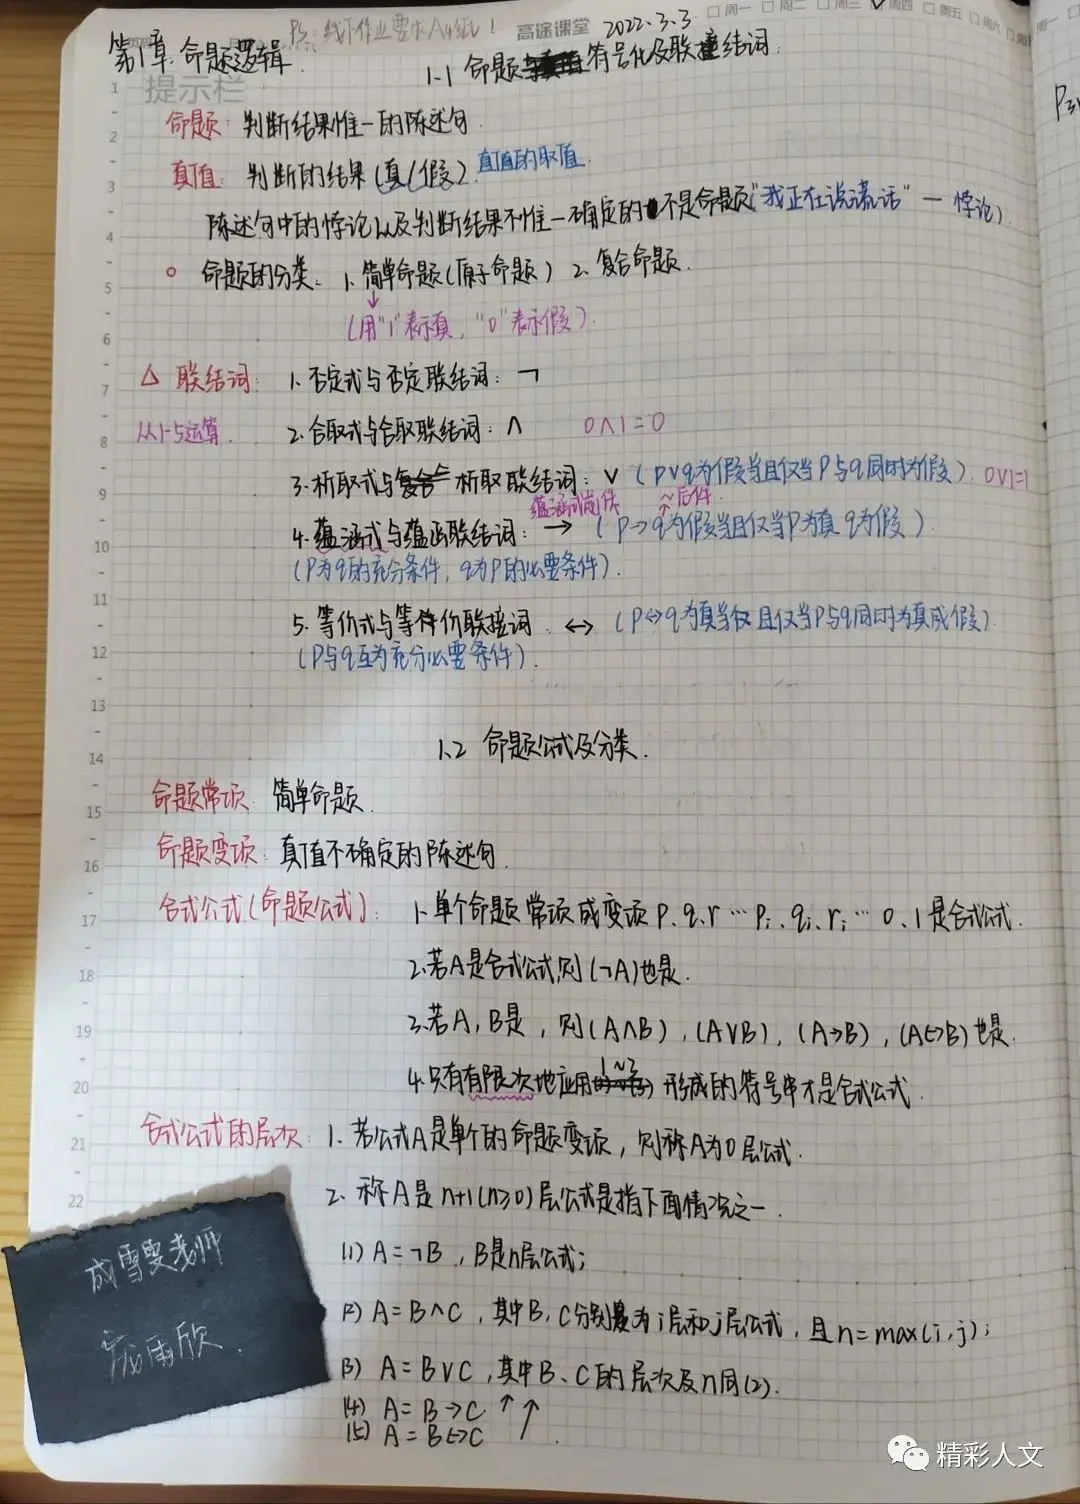 Ps: 线下作业要求A4纸!
高途课堂 2022.3.3 周一 周二 周三 周四 周五 周六 周日
第1章. 命题逻辑
1.1 命题符号化及联结词.
提示栏
命题: 判断结果惟一的陈述句.
真值: 判断的结果(真/假). 真值的取值.
陈述句中的悖论以及判断结果不惟一确定的不是命题("我正在说谎话" — 悖论).
命题的分类: 1. 简单命题(原子命题) 2. 复合命题.
↓
(用"1"表示真, "0"表示假).
△ 联结词: 1. 否定式与否定联结词: ¬
从1-5运算. 2. 合取式与合取联结词: ∧ 0∧1=0
3. 析取式与析取联结词: ∨ (p∨q为假当且仅当p与q同时为假). 0∨1=1
蕴涵式前件 ~后件.
4. 蕴涵式与蕴涵联结词: → (p→q为假当且仅当p为真q为假).
(p为q的充分条件, q为p的必要条件).
5. 等价式与等价联接词 ↔ (p↔q为真当仅且仅当p与q同时为真或假).
(p与q互为充分必要条件).
1.2 命题公式及分类.
命题常项: 简单命题.
命题变项: 真值不确定的陈述句.
合式公式(命题公式): 1. 单个命题常项或变项 p、q、r…pᵢ、qᵢ、rᵢ…0、1是合式公式.
2. 若A是合式公式,则(¬A)也是.
3. 若A, B是, 则(A∧B), (A∨B), (A→B), (A↔B)也是.
4. 只有有限次地应用1~3形成的符号串才是合式公式.
合式公式的层次: 1. 若公式A是单个的命题变项, 则称A为0层公式.
2. 称A是n+1(n≥0)层公式是指下面情况之一.
(1) A=¬B, B是n层公式;
(2) A=B∧C, 其中B、C分别为i层和j层公式, 且n=max(i,j);
(3) A=B∨C, 其中B、C的层次及n同(2).
(4) A=B→C ↑ ↑
(5) A=B↔C
成雪雯老师
精彩人文
1
2
3
4
5
6
7
8
9
10
11
12
13
14
15
16
17
18
19
20
21
22